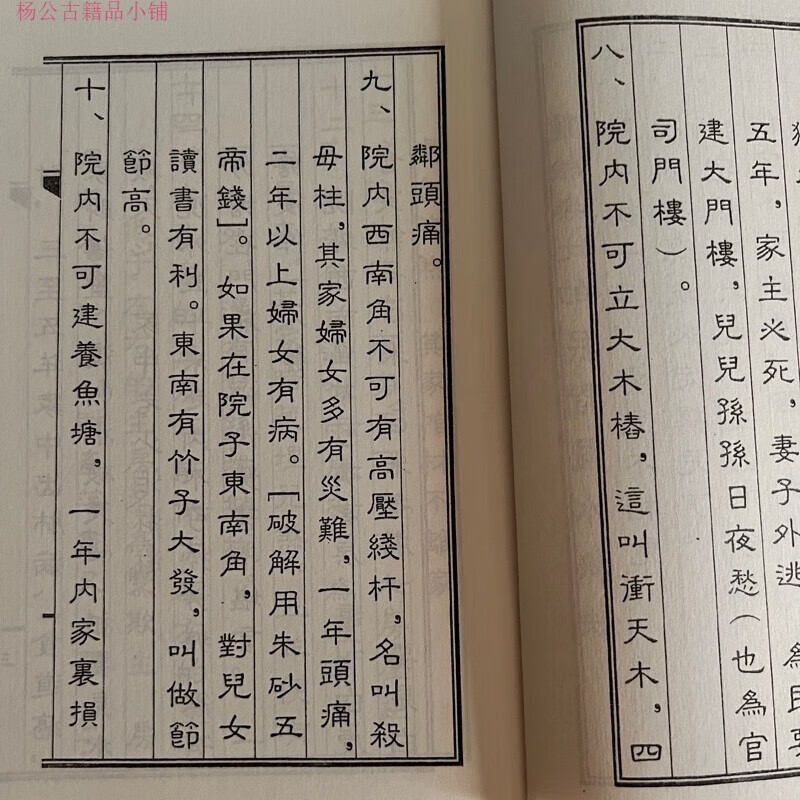 杨公古籍品小铺
五年，家主必死，妻子外逃 為民要
建大門樓，兒兒孫孫日夜愁（也為官
司門樓）。
八、院內不可立大木樁，這叫衝天木，四
鄰頭痛。
九、院內西南角不可有高壓綫杆，名叫殺
母柱，其家婦女多有災難，一年頭痛，
二年以上婦女有病。［破解用朱砂五
帝錢］。如果在院子東南角，對兒女
讀書有利。東南有竹子大發，叫做節
節高。
十、院內不可建養魚塘，一年內家裏損